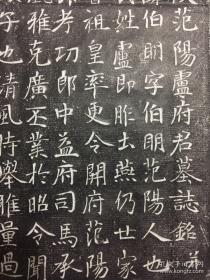 范陽盧府君墓誌銘
諱伯明字伯明范陽人也
姓盧即胙土燕仍世家
曾祖皇率更令開府范陽
考功郎中益府司馬承
風雅克廣丕業於昭令聞
子也清風時舉雅量過